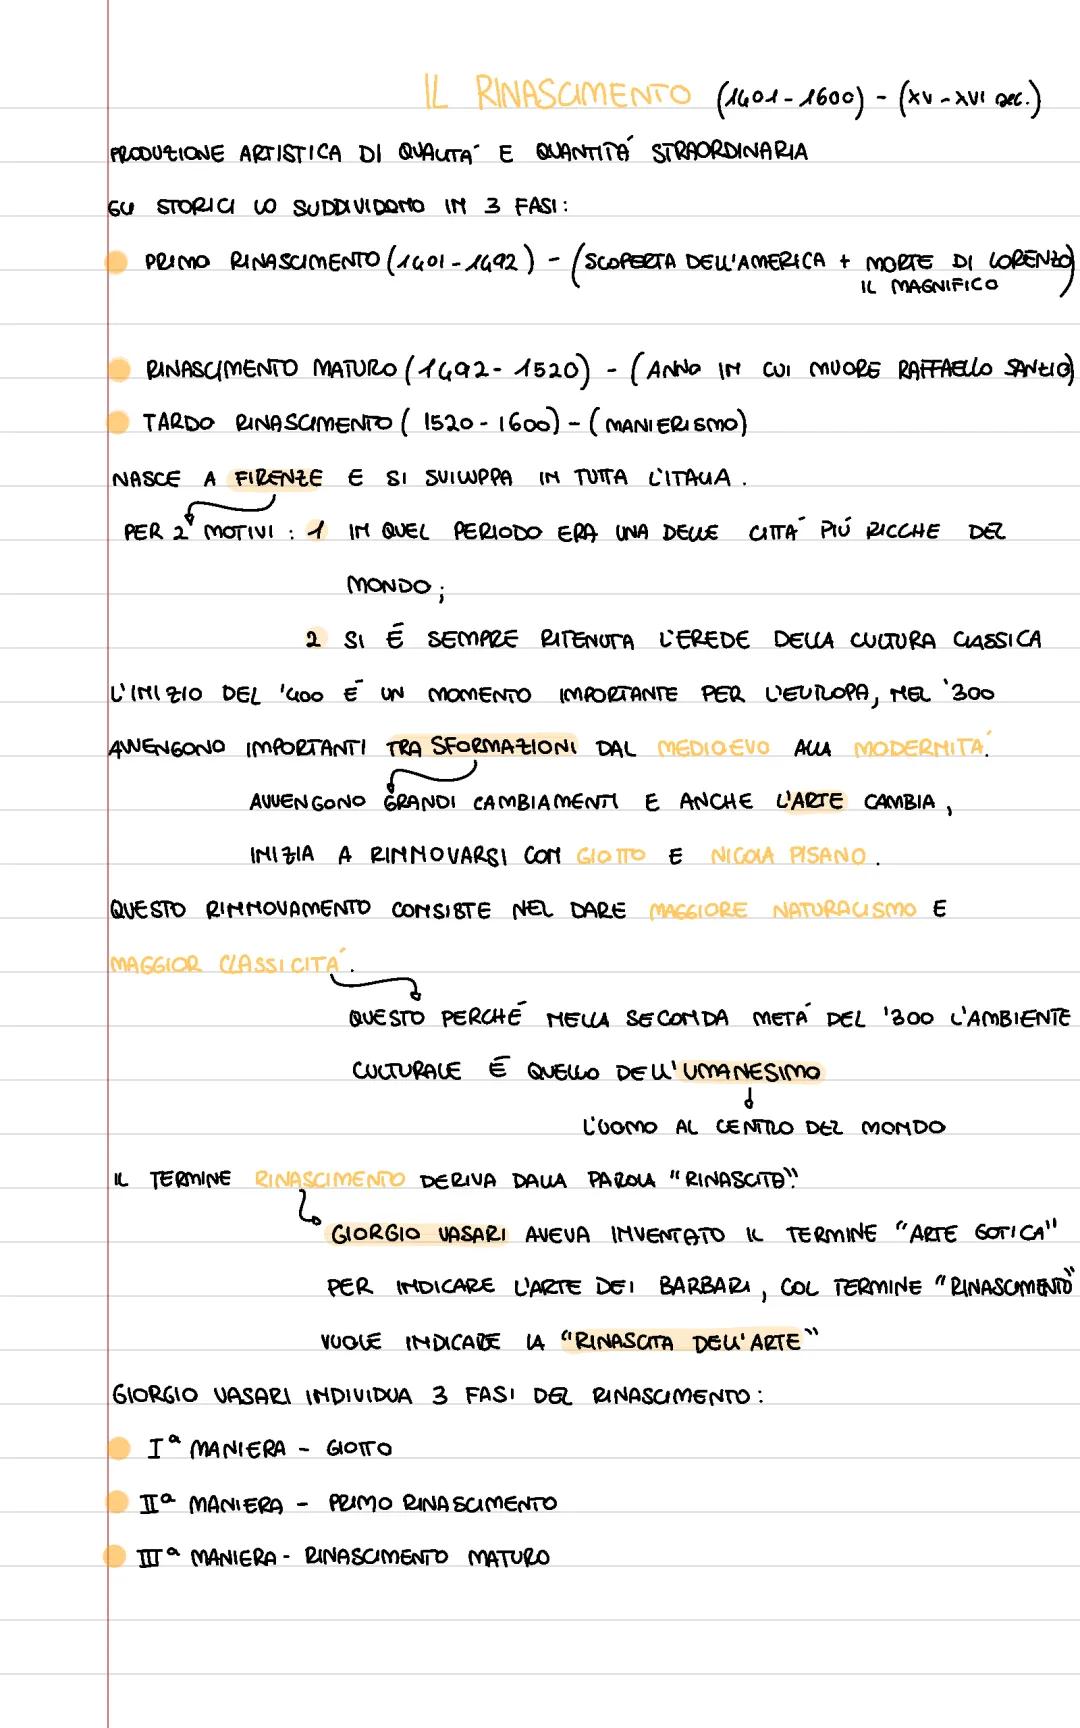 IL RINASCIMENTO (1401-1600) - (XV-XVI sec.)
PRODUZIONE ARTISTICA DI QUALITA´ E QUANTITÁ STRAORDINARIA
GLI STORICI LO SUDDIVIDONO IN 3 FASI:
PRIMO RINASCIMENTO (1401-1492) - (SCOPERTA DELL'AMERICA + MORTE DI LORENZO
IL MAGNIFICO)
RINASCIMENTO MATURO (1492-1520) - (ANNO IN CUI MUORE RAFFAELLO SANZIO)
TARDO RINASCIMENTO (1520-1600) - (MANIERISMO)
NASCE A FIRENZE E SI SVILUPPA IN TUTTA L'ITALIA.
PER 2 MOTIVI: 1 IN QUEL PERIODO ERA UNA DELLE CITTÁ PIÚ RICCHE DEL
MONDO;
2 SI É SEMPRE RITENUTA L'EREDE DELLA CULTURA CLASSICA
L'INIZIO DEL '400 É UN MOMENTO IMPORTANTE PER L'EUROPA, NEL '300
AVVENGONO IMPORTANTI TRASFORMAZIONI DAL MEDIOEVO ALLA MODERNITÁ.
AVVENGONO GRANDI CAMBIAMENTI E ANCHE L'ARTE CAMBIA,
INIZIA A RINNOVARSI CON GIOTTO E NICOLA PISANO.
QUESTO RINNOVAMENTO CONSISTE NEL DARE MAGGIORE NATURALISMO E
MAGGIOR CLASSICITÁ.
QUESTO PERCHÉ NELLA SECONDA METÁ DEL '300 L'AMBIENTE
CULTURALE É QUELLO DELL'UMANESIMO
L'UOMO AL CENTRO DEL MONDO
IL TERMINE RINASCIMENTO DERIVA DALLA PAROLA "RINASCITA".
GIORGIO VASARI AVEVA INVENTATO IL TERMINE "ARTE GOTICA"
PER INDICARE L'ARTE DEI BARBARI, COL TERMINE "RINASCIMENTO"
VUOLE INDICARE LA "RINASCITA DELL'ARTE"
GIORGIO VASARI INDIVIDUA 3 FASI DEL RINASCIMENTO:
Iª MANIERA - GIOTTO
IIª MANIERA - PRIMO RINASCIMENTO
IIIª MANIERA - RINASCIMENTO MATURO